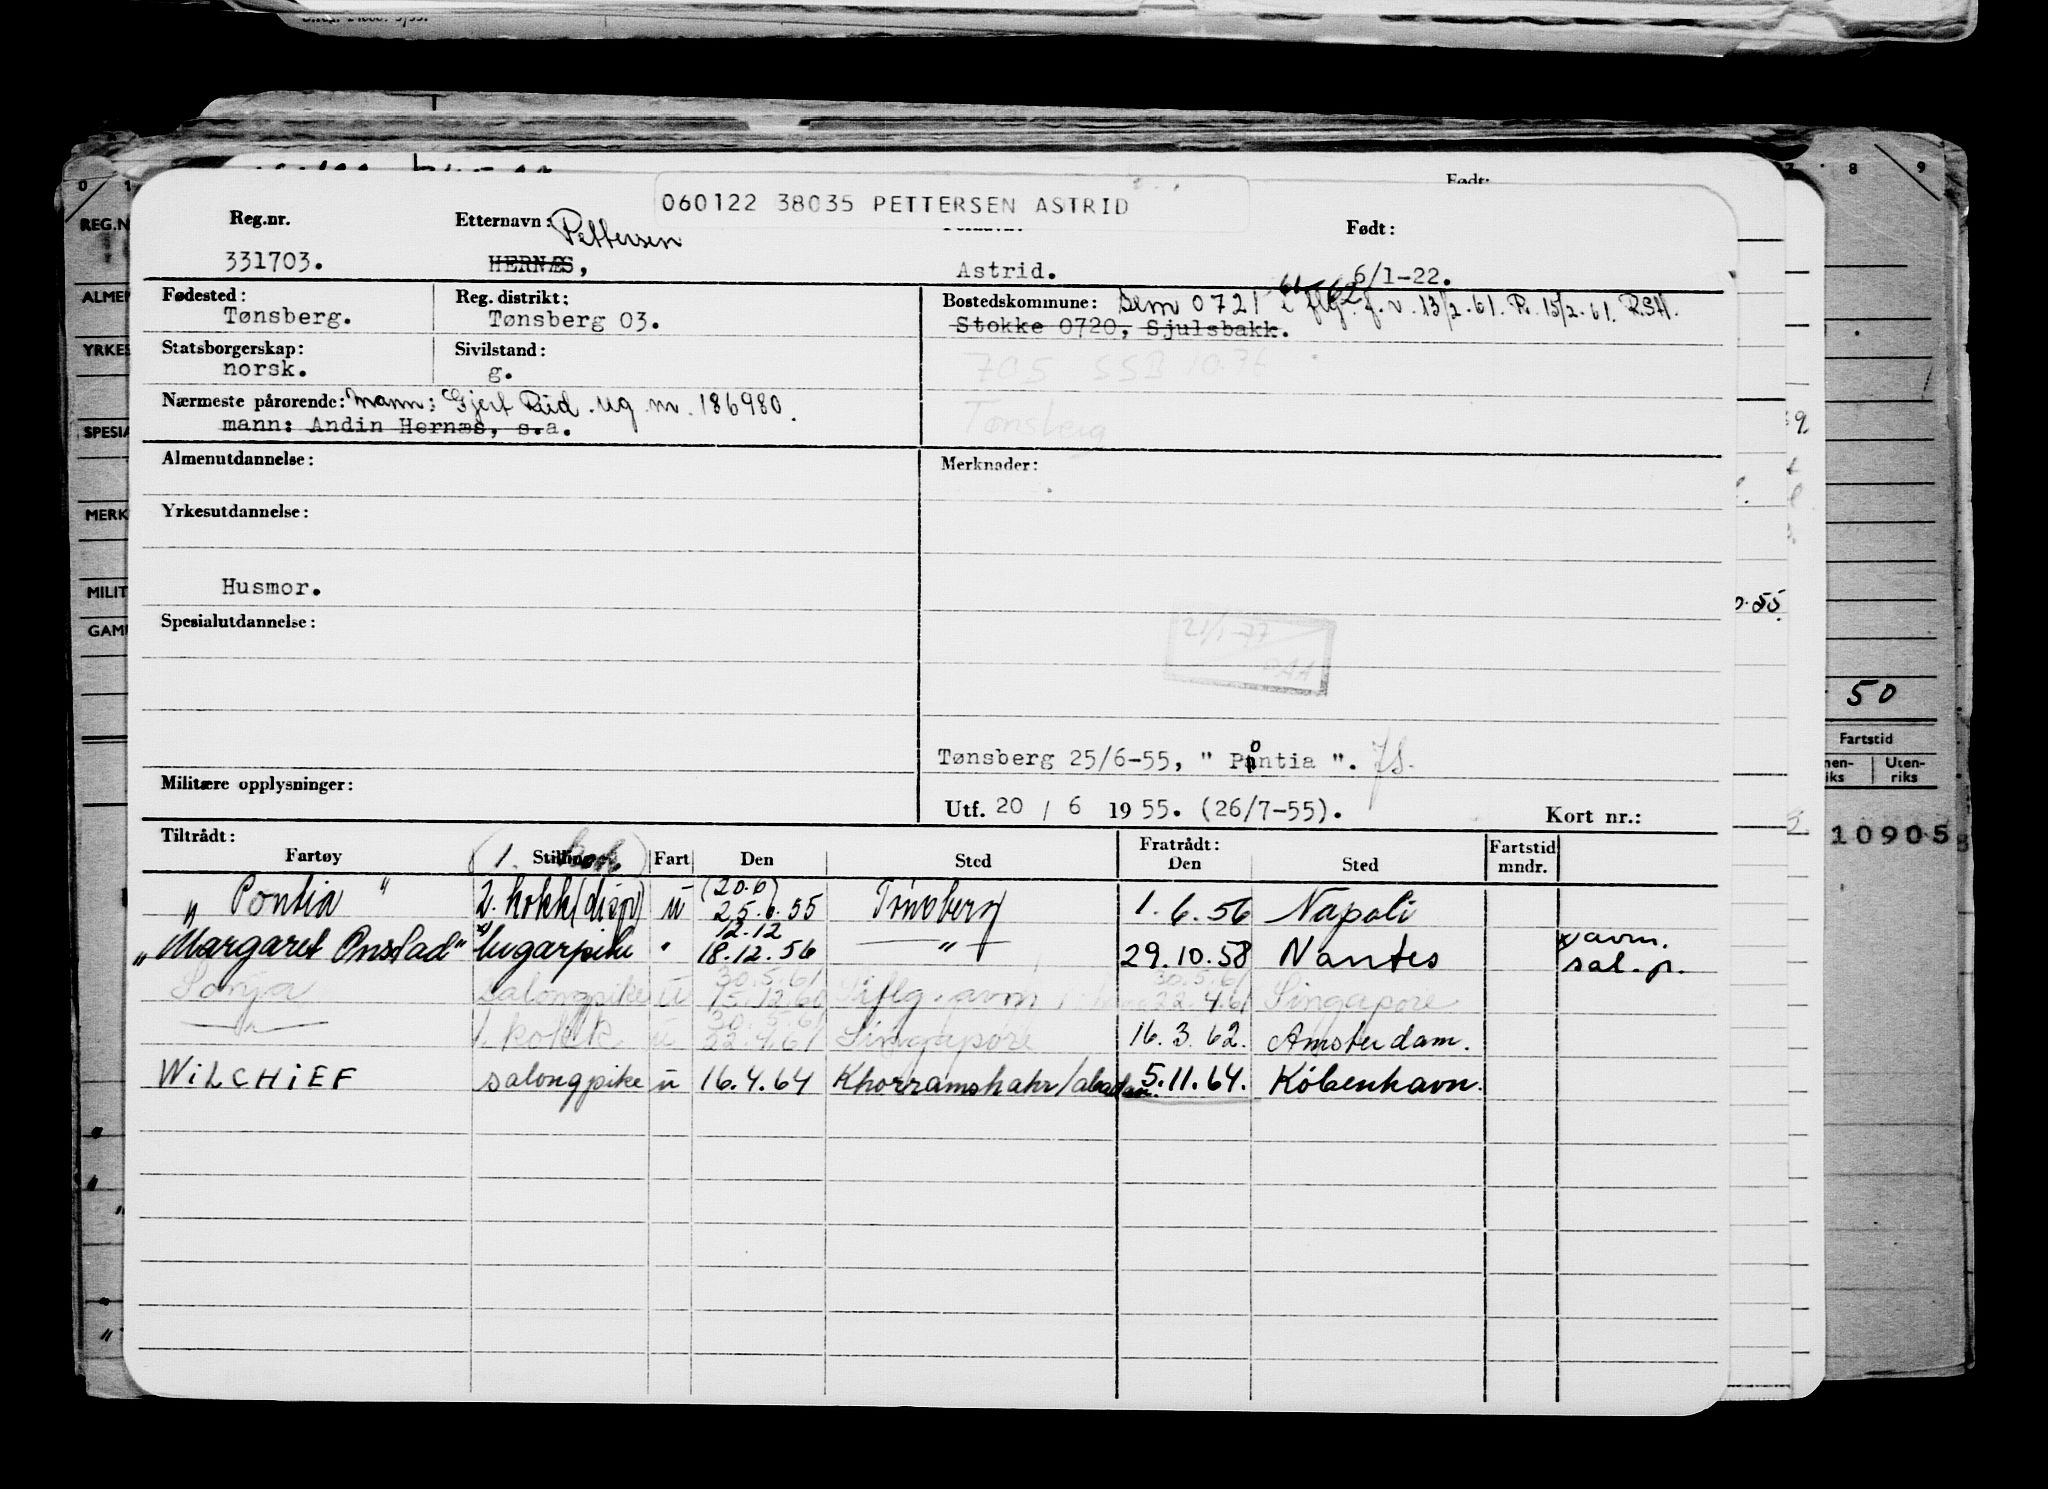 060122 38035 PETTERSEN ASTRID
Reg.nr. Etternavn: Pettersen Født:
331703. HERNÆS, Astrid. 6/1-22.
Fødested: Reg. distrikt: Bostedskommune: Sem 0721 61-62 i flg. f. v. 13/2.61. R. 15/2.61. RSH.
Tønsberg. Tønsberg 03. Stokke 0720, Sjulsbakk.
Statsborgerskap: Sivilstand:
norsk. g. 705 SSB 10.76
Nærmeste pårørende: Mann: Gjert Rüd. ug m. 186980.
mann: Andin Hernæs, s.a. Tønsberg
Almenutdannelse: Merknader:
Yrkesutdannelse:
Husmor.
Spesialutdannelse:
21/1-77
OAA
Tønsberg 25/6-55, " Pontia ".
Militære opplysninger:
Utf. 20 / 6 1955. (26/7-55). Kort nr.:
Tiltrådt: Fratrådt:
Fartøy Stilling Fart Den Sted Den Sted Fartstid mndr.
(1. kok)
„ Pontia " 2. kokk (disp) u (20.6) 25.6.55 Tönsberg 1.6.56 Napoli
„Margaret Onstad" Lugarpike " 12.12 18.12.56 — " — 29.10.58 Nantes x avm. sal.p.
Sonja salongpike u 30.5.61 15.12.60 i flg. avm 30.5.61 22.4.61 Singapore
— " — 1. kokk u 30.5.61 22.4.61 Singapore 16.3.62. Amsterdam.
WILCHIEF salongpike u 16.4.64 Khorramshahr/abadan. 5.11.64. Köbenhavn.
Født:
0 1
8 9
REG.N
ALMEN
YRKES
SPESIA
MERK
MILIT
GAM
50
Fartstid
Uten-
riks
10905